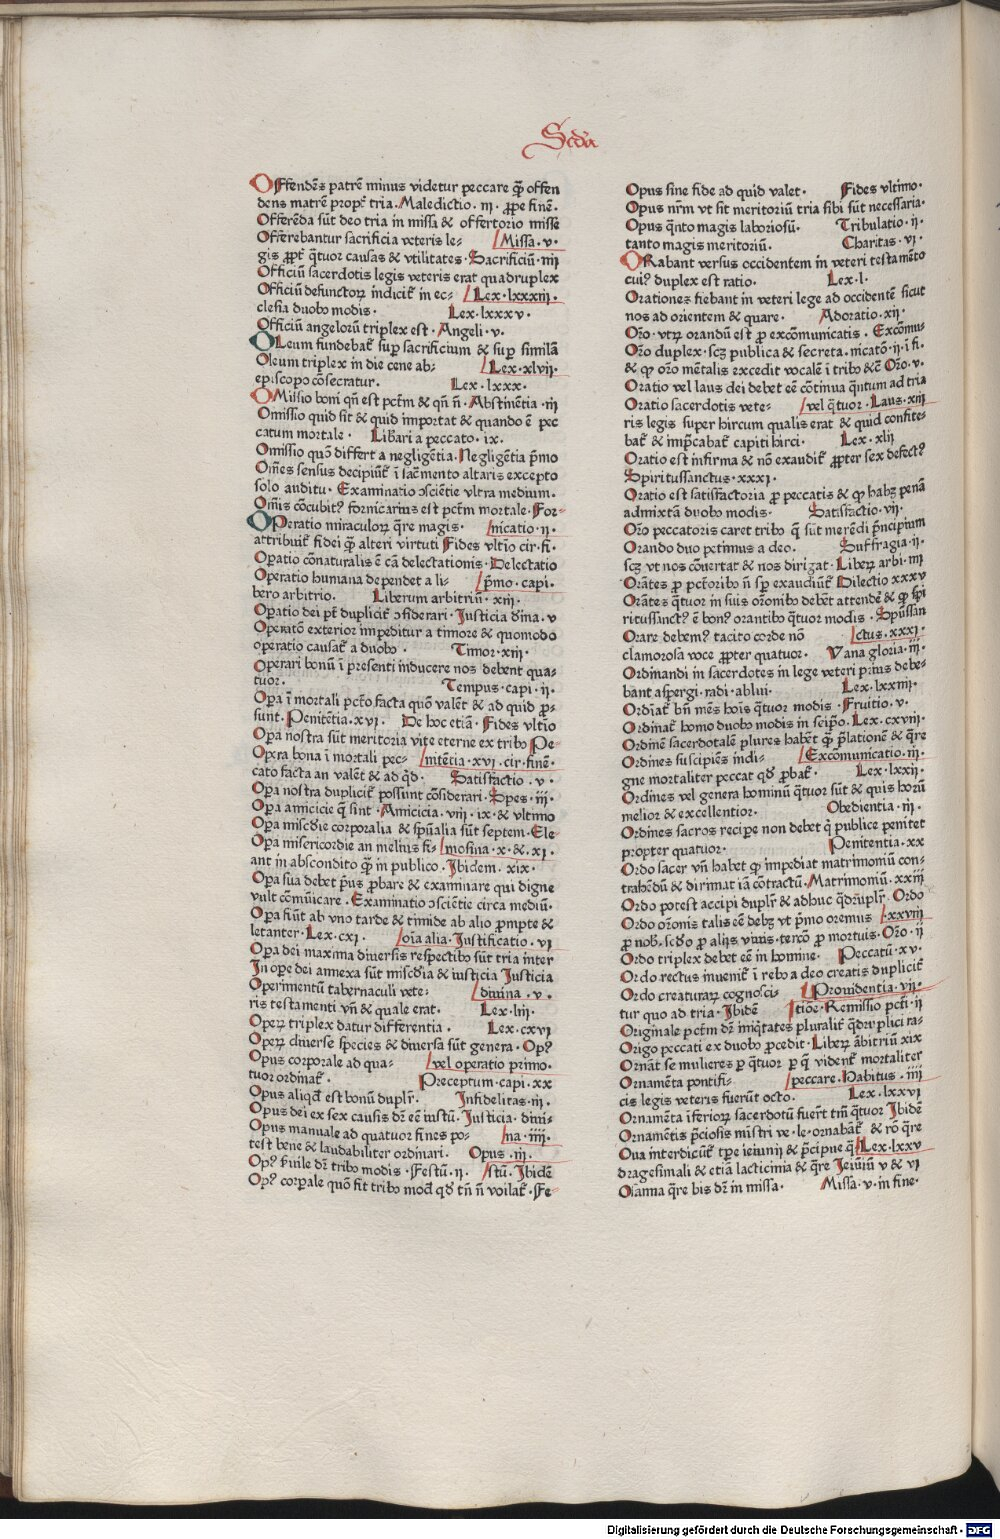 Scd'a
Offendēs patrē minus videtur peccare q̄ꝫ offen
dens matrē propt' tria. Maledictio · iij · ꝓpe finē.
Offerēda sūt deo tria in missa & offertorio misse
Offerebantur sacrificia veteris le- [Missa · v ·
gis ꝓpt' q̄tuor causas & vtilitates · Sacrificiū · iiij
Officiū sacerdotis legis veteris erat quadruplex
Officiū defunctoꝝ indicit' in ec- [Lex · lxxxiiij ·
clesia duobo modis · Lex · lxxxv ·
Officiū angeloꝝ triplex est · Angeli · v ·
Oleum fundebat' sup̱ sacrificium & sup̱ similā
Oleum triplex in die cene ab- [Lex · xlvij ·
ep̱iscopo cōsecratur · Lex · lxxx ·
Omissio boni qn̄ est pctm̄ & qn̄ n̄ · Abstinētia · iij
Omissio quid sit & quid importat & quando ē pec
catum mortale · Libari a peccato · ix ·
Omissio quō differt a negligētia. Negligētia pmo
Om̄es sensus decipiūt' ī sac̄mento altaris excepto
solo auditu · Examinatio ↄsciētie vltra medium ·
Om̄is cōcubit' fornicarius est pctm̄ mortale · For-
Operatio miraculoꝝ q̄re magis · [nicatio · ij ·
attribuit' fidei q̄ꝫ alteri virtuti Fides vltīo cir · fi ·
Op̱atio cōnaturalis ē cā delectationis · Delectatio
Operatio humana dependet a li- [p̄mo · capi ·
bero arbitrio · Liberum arbitriū · xiij ·
Op̱atio dei pt' duplicit' ↄsiderari · Justicia d̄ina · v
Operatō exterior impeditur a timore & quomodo
operatio causat' a duobo · Timor · xiij ·
Operari bonū ī presenti inducere nos debent qua-
tuor · Tempus · capi · ij ·
Op̱a ī mortali pctō facta quō valēt & ad quid p̱-
sunt · Penitētia · xvi · De hoc etiā · Fides vltīo
Op̱a nostra sūt meritoria vite eterne ex tribo Pe-
Opera bona ī mortali pec- [nitētia · xvi · cir · finē ·
cato facta an valēt & ad qd · Satisfactio · v ·
Op̱a nostra duplicit' possunt cōsiderari · Spes · iij ·
Op̱a amicicie q̄ sint · Amicicia · viij · ix · & vltimo
Op̱a misc̄die corporalia & sp̄ualia sūt septem · Ele-
Op̱a misericordie an melius fi- [mosina · x · & · xi ·
ant in abscondito q̄ꝫ in publico · Ibidem · xix ·
Op̱a sua debet p̄us ꝓbare & examinare qui digne
vult cōmūicare · Examinatio ↄsciētie circa mediū ·
Op̱a fiūt ab vno tarde & timide ab alio prompte &
letanter · Lex · cxi · [oīa alia · Justificatio · vi
Op̱a dei maxima diuersis respectibo sūt tria inter
In ope dei annexa sūt misc̄dia & iusticia Justicia
Operimentū tabernaculi vete- [diuina · v ·
ris testamenti vn̄ & quale erat · Lex · liij ·
Opeꝝ triplex datur differentia · Lex · cxvi
Opeꝝ diuerse species & diuersa sūt genera · Op'
Opus corporale ad qua- [vel operatio primo ·
tuor ordinat' · Preceptum · capi · xx
Opus aliqd est bonū duplr̄ · Infidelitas · iij ·
Opus dei ex sex causis dr̄ eē iustū · Justicia · diui-
Opus manuale ad quatuor fines po- [na · iiij ·
test bene & laudabiliter ordinari · Opus · iij ·
Op' s̄uile dr̄ tribo modis · Festū · ij · [stū · Ibidē
Op' corp̱ale quō fit tribo mod' qd tn̄ n̄ voilat' · Fe-
Opus sine fide ad quid valet · Fides vltimo ·
Opus nrm̄ vt sit meritoriū tria sibi sūt necessaria ·
Opus q̄nto magis laboriosū · Tribulatio · ij ·
tanto magis meritoriū · Charitas · vi ·
Orabant versus occidentem in veteri testamēto
cui' duplex est ratio · Lex · l ·
Orationes fiebant in veteri lege ad occidentē sicut
nos ad orientem & quare · Adoratio · xij ·
Orō · vtꝝ orandū est ꝓ excōmunicatis · Excōmu-
Orō duplex · scꝫ publica & secreta · nicatō · ij · ī fi ·
& qꝫ orō mētalis excedit vocalē ī tribo & ē Orō · v ·
Oratio vel laus dei debet eē cōtinua q̄ntum ad tria
Oratio sacerdotis vete- [vel q̄tuor · Laus · xiij
ris legis super hircum qualis erat & quid confite-
bat' & imp̄cabat' capiti hirci · Lex · xlij
Oratio est infirma & nō exaudit' ꝓpter sex defect'
Spiritussanctus · xxxi ·
Oratio est satisfactoria ꝓ peccatis & qꝫ habꝫ penā
admixtā duobo modis · Satisfactio · vij ·
Orō peccatoris caret tribo q̄ sūt merēdi p̄ncipium
Orando duo petimus a deo · Suffragia · ij ·
scꝫ vt nos cōuertat & nos dirigat · Libeꝝ arbi · iiij
Orātes ꝓ pctōribo n̄ sp̱ exaudiūt' Dilectio xxxv
Orātes q̄tuor in suis orōnibo debēt attendē & ꝓ sp̄i
ritussanct' ē bon' orantibo q̄tuor modis · Spūssan
Orare debem' tacito corde nō [ctus · xxxi ·
clamorosa voce ꝓpter quatuor · Vana gloria · iij ·
Ordinandi in sacerdotes in lege veteri prius debe-
bant aspergi · radi · ablui · Lex · lxxiiij ·
Ordīat' bn̄ mēs hoīs q̄tuor modis · Fruitio · v ·
Ordinat' homo duobo modis in seip̄o · Lex · cxvij ·
Ordinē sacerdotalē plures habēt q̄ꝫ p̄lationē & q̄re
Ordines suscipiēs indi- [Excōmunicatio · iij ·
gne mortaliter peccat qd ꝓbat' · Lex · lxxij ·
Ordines vel genera hominū q̄tuor sūt & quis horū
melior & excellentior · Obedientia · iij ·
Ordines sacros recipe non debet q̄ publice penitet
propter quatuor · Penitentia · xx
Ordo sacer vn̄ habet qꝫ impediat matrimoniū con-
trahēdū & dirimat iā cōtractū · Matrimoniū · xxiij
Ordo potest accipi duplr̄ & adhuc q̄druplr̄ · Ordo
Ordo orōnis talis eē debꝫ vt p̄mo oremus [· xxviij
ꝓ nob · sc̄do ꝓ alijs viuis · tercō ꝓ mortuis · Orō · ij
Ordo triplex debet eē in homine · Peccatū · xv ·
Ordo rectus inuenit' ī rebo a deo creatis duplicit'
Ordo creaturaꝝ cognosci- [Prouidentia · vij ·
tur quo ad tria · Ibidē [tiōe · Remissio pcti · ij
Originale pctm̄ dr̄ iniq̄tates pluralit' q̄druplici ra-
Origo peccati ex duobo procedit · Libeꝝ ābitriū xix
Ornāt se mulieres p̱ q̄tuor p̱ q̄ vident' mortaliter
Ornamēta pontifi- [peccare · Habitus · iiij
cis legis veteris fuerūt octo · Lex · lxxvi
Ornamēta īferioꝝ sacerdotū fuerūt tm̄ q̄tuor Ibidē
Ornamētis p̄ciosis mīstri ve · le · ornabāt' & rō q̄re
Oua interdicūt' tp̱e ieiunij & p̄cipue q̄- [Lex · lxxv
dragesimali & etiā lacticinia & q̄re Ieiuīū v & vi
Osanna q̄re bis dr̄ in missa · Missa · v · in fine ·
Digitalisierung gefördert durch die Deutsche Forschungsgemeinschaft - DFG